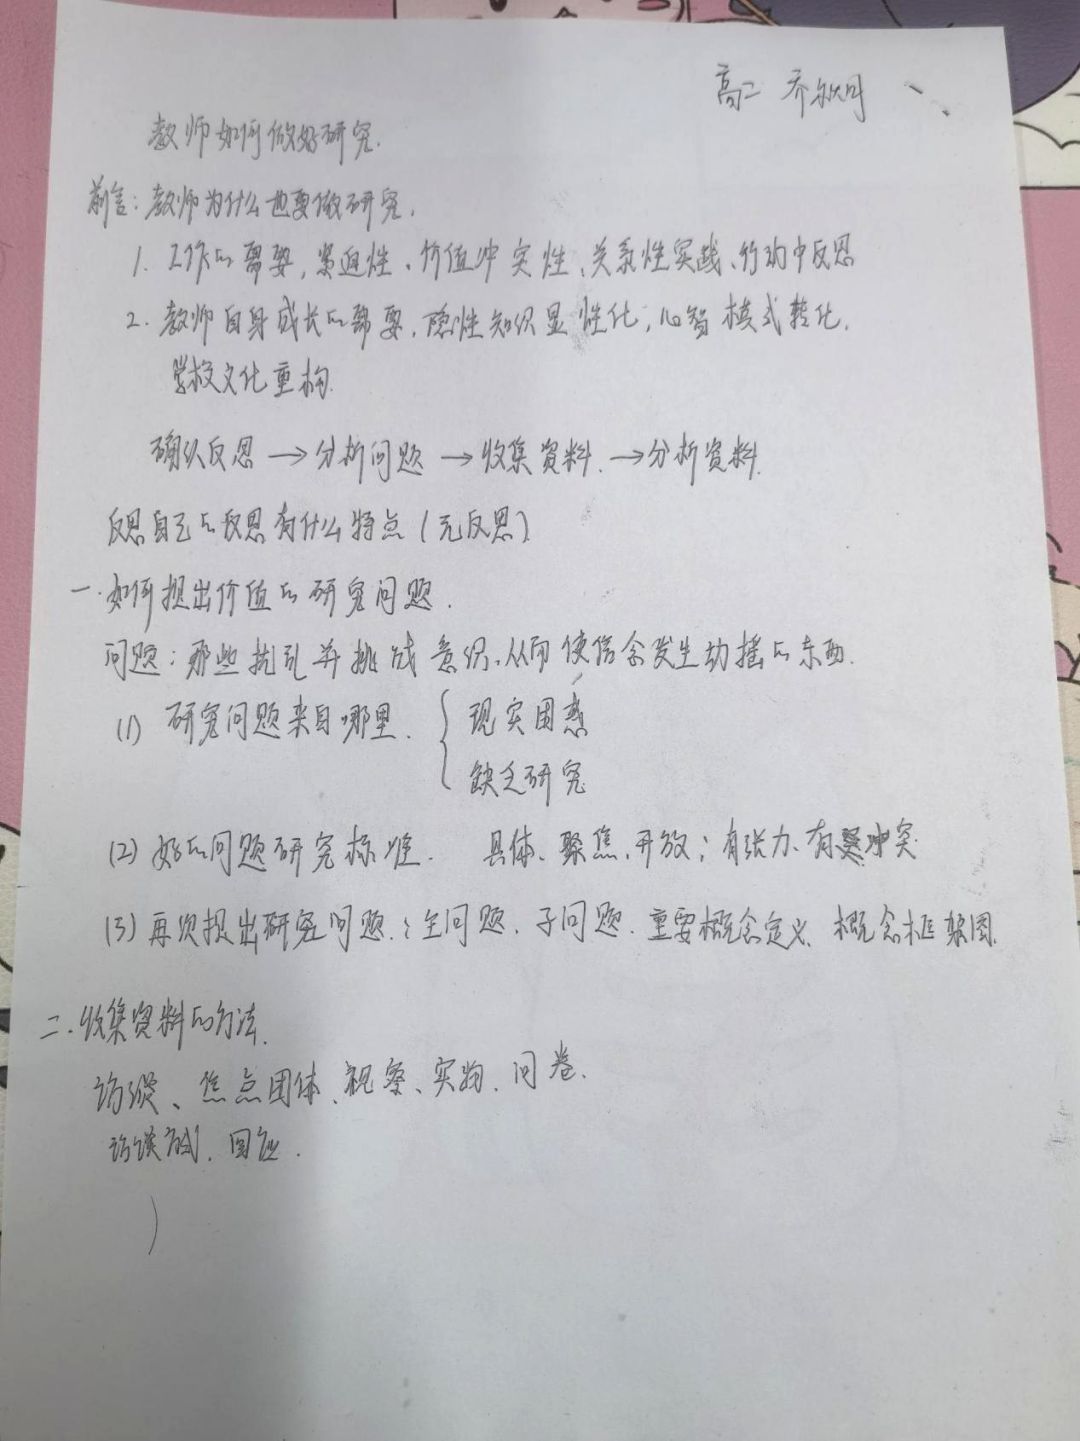 高二 乔秋月
教师如何做好研究.
前言：教师为什么也要做研究.
1. 工作的需要，紧迫性、价值冲突性、关系性实践、行动中反思
2. 教师自身成长的需要，隐性知识显性化，心智模式转化.
学校文化重构.
确认反思→分析问题→收集资料.→分析资料.
反思自己的反思有什么特点(元反思)
一.如何提出价值的研究问题.
问题：那些扰乱并挑战意识、从而使信念发生动摇的东西.
(1) 研究问题来自哪里. { 现实困惑
缺乏研究
(2) 好的问题研究标准. 具体、聚焦、开放；有张力、有冲突
(3) 再次提出研究问题：主问题、子问题. 重要概念定义、概念框架图.
二.收集资料的方法.
访谈、焦点团体、观察、实物、问卷.
访谈方式、回应.